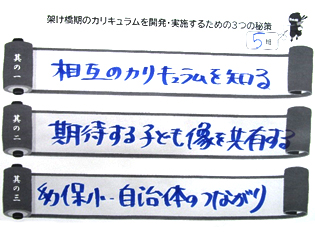 架け橋期のカリキュラムを開発・実施するための3つの秘策
5班
其の一
相互のカリキュラムを知る
其の二
期待する子ども像を共有する
其の三
幼保小-自治体のつながり